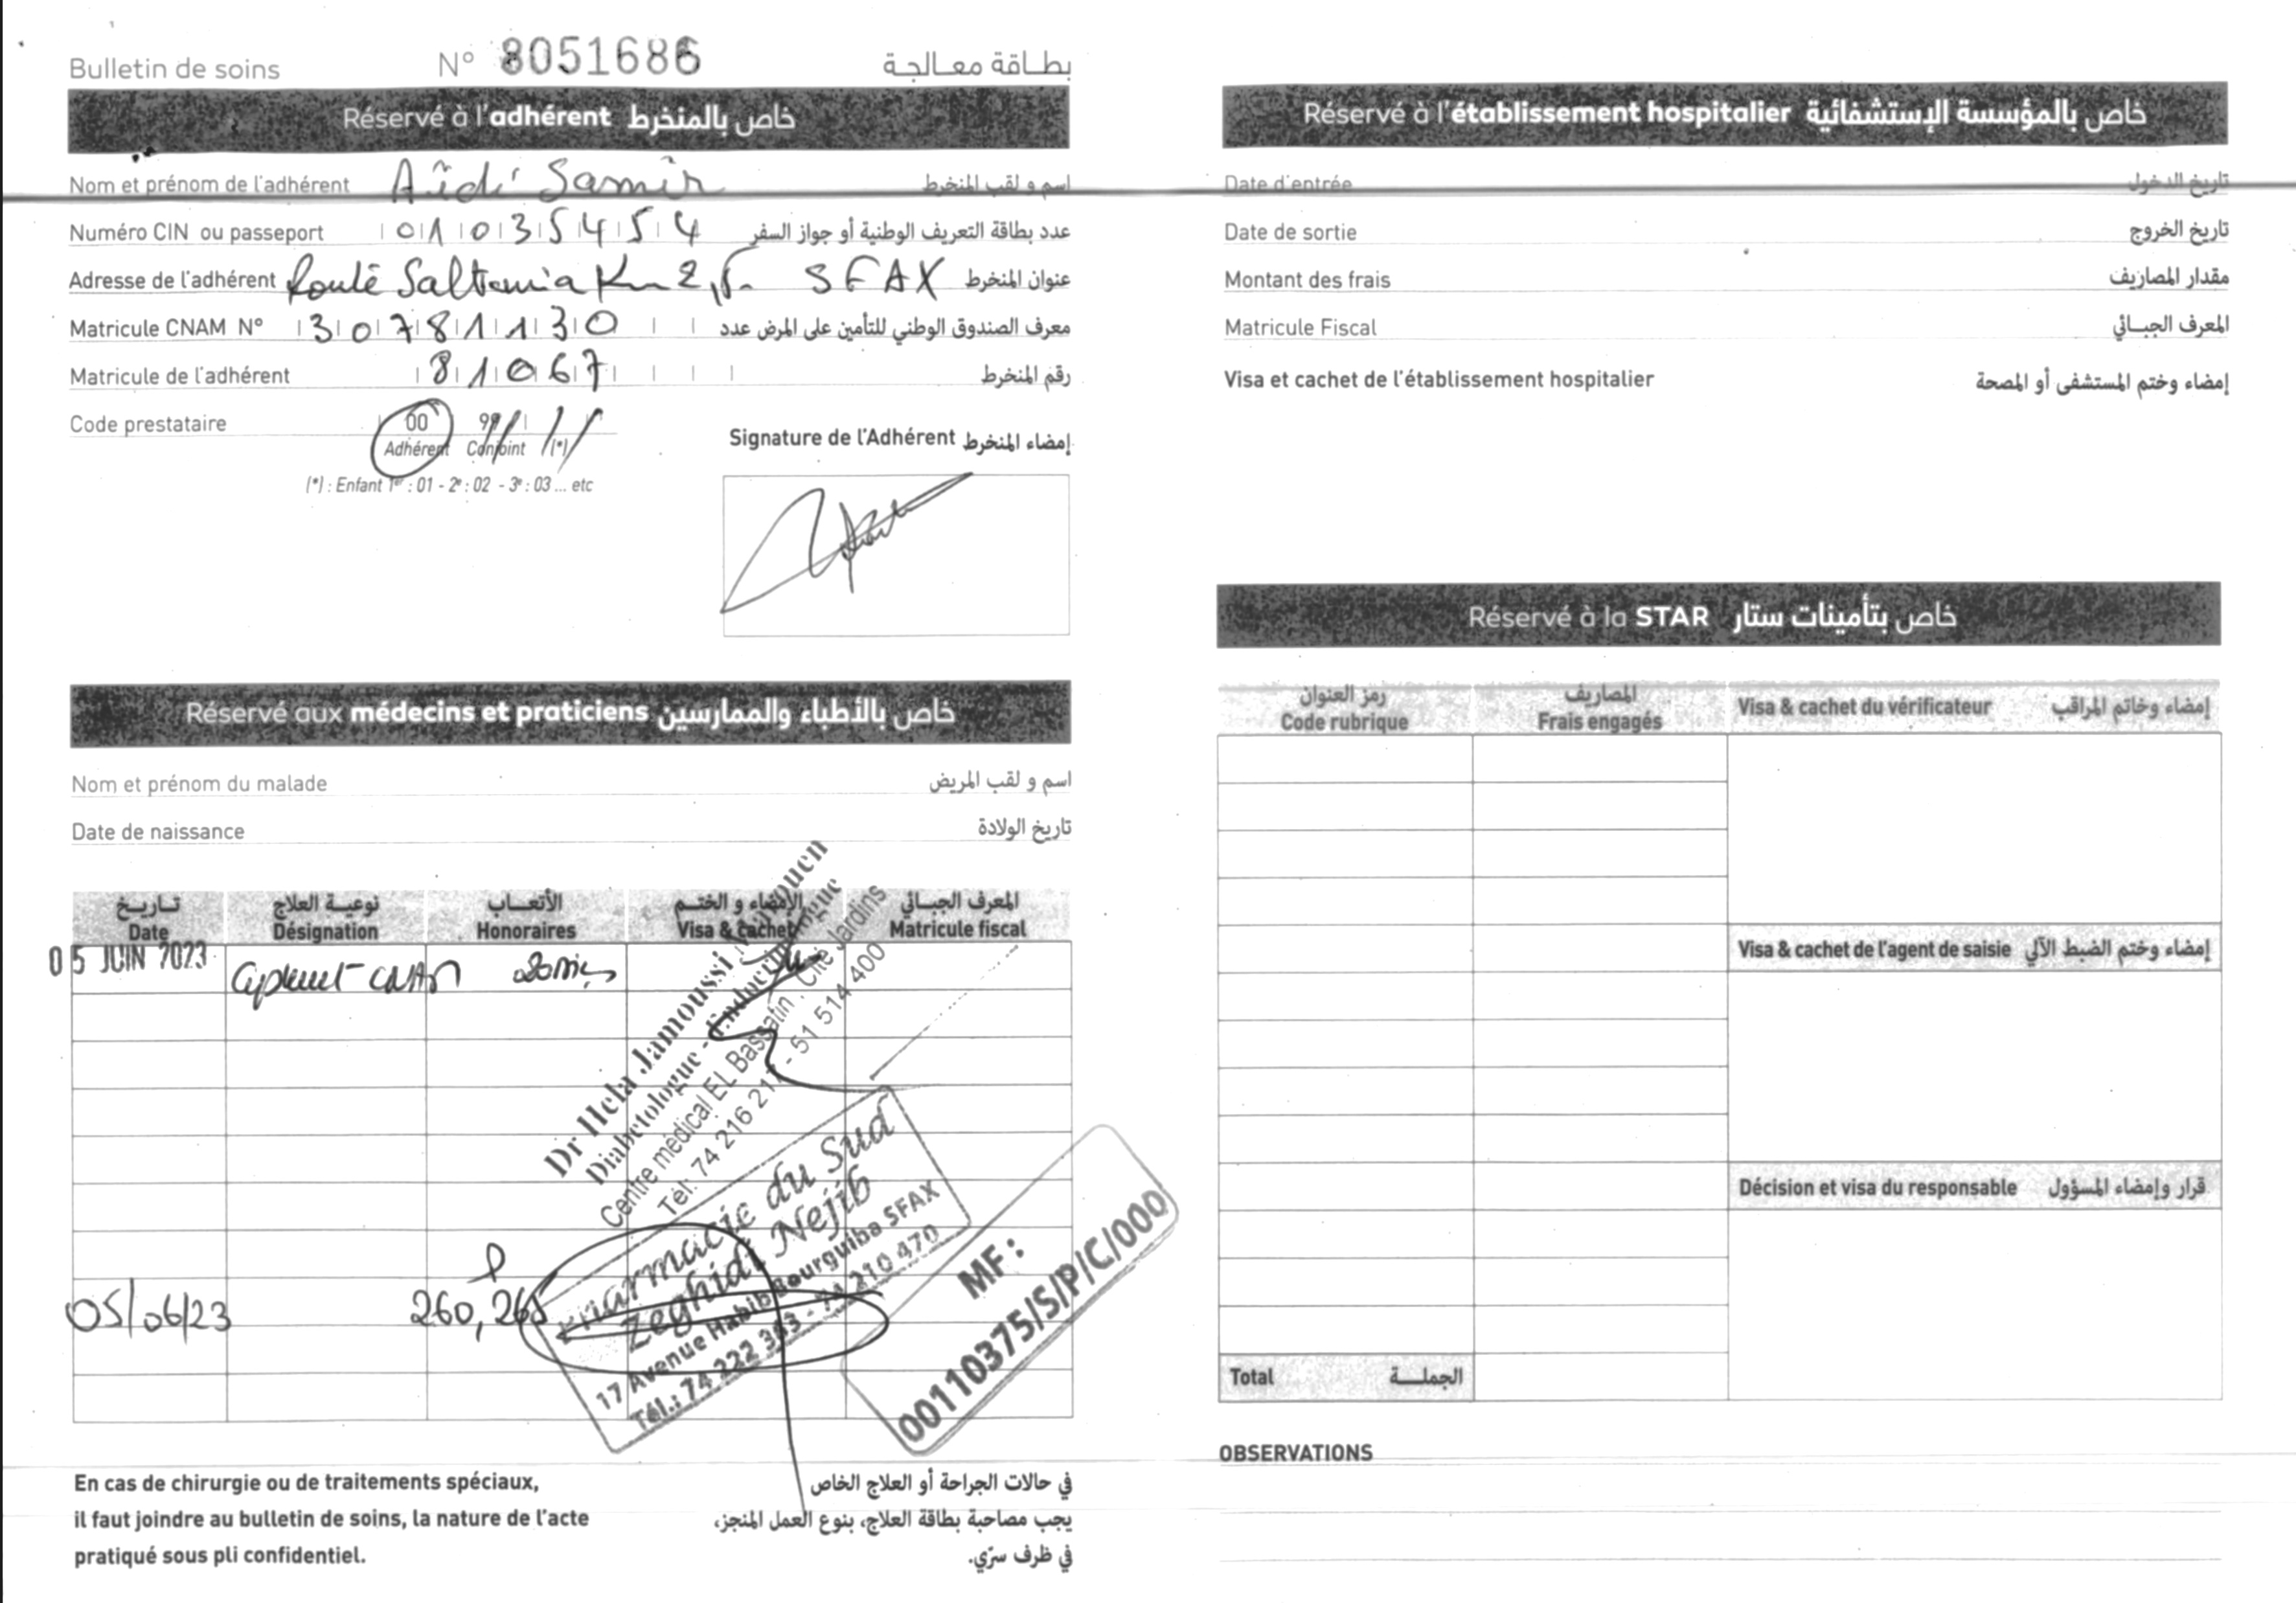 Bulletin de soins N° 8051686 بطاقة معالجة
Réservé à l'adhérent خاص بالمنخرط
Nom et prénom de l'adhérent Aïdi Samir اسم و لقب المنخرط
Numéro CIN ou passeport 01035454 عدد بطاقة التعريف الوطنية أو جواز السفر
Adresse de l'adhérent Route Saltania Km 2,5 SFAX عنوان المنخرط
Matricule CNAM N° 30781130 معرف الصندوق الوطني للتأمين على المرض عدد
Matricule de l'adhérent 81067 رقم المنخرط
Code prestataire 00 99
Adhérent Conjoint (*)
(*) : Enfant 1er : 01 - 2e : 02 - 3e : 03 ... etc
Signature de l'Adhérent إمضاء المنخرط
Réservé aux médecins et praticiens خاص بالأطباء والممارسين
Nom et prénom du malade اسم و لقب المريض
Date de naissance تاريخ الولادة
تاريخ نوعية العلاج الأتعاب الإمضاء و الختم المعرف الجبائي
Date Désignation Honoraires Visa & cachet Matricule fiscal
05 JUIN 2023 CNAM
Dr Hela Jamoussi
Diabétologue - Endocrinologue
Centre médical EL Bassatin, Cité Jardins
Tél: 74 216 217 - 51 514 400
05/06/23 260,265
Pharmacie du Sud
Zeghidi Nejib
17 Avenue Habib Bourguiba SFAX
Tél.: 74 222 363 - 74 210 470
MF:
00110375/S/P/C/000
En cas de chirurgie ou de traitements spéciaux,
il faut joindre au bulletin de soins, la nature de l'acte
pratiqué sous pli confidentiel.
في حالات الجراحة أو العلاج الخاص
يجب مصاحبة بطاقة العلاج، بنوع العمل المنجز،
في ظرف سرّي.
Réservé à l'établissement hospitalier خاص بالمؤسسة الإستشفائية
Date d'entrée تاريخ الدخول
Date de sortie تاريخ الخروج
Montant des frais مقدار المصاريف
Matricule Fiscal المعرف الجبائي
Visa et cachet de l'établissement hospitalier إمضاء وختم المستشفى أو المصحة
Réservé à la STAR خاص بتأمينات ستار
رمز العنوان المصاريف
Code rubrique Frais engagés Visa & cachet du vérificateur إمضاء وخاتم المراقب
Visa & cachet de l'agent de saisie إمضاء وختم الضبط الآلي
Décision et visa du responsable قرار وإمضاء المسؤول
Total الجملة
OBSERVATIONS